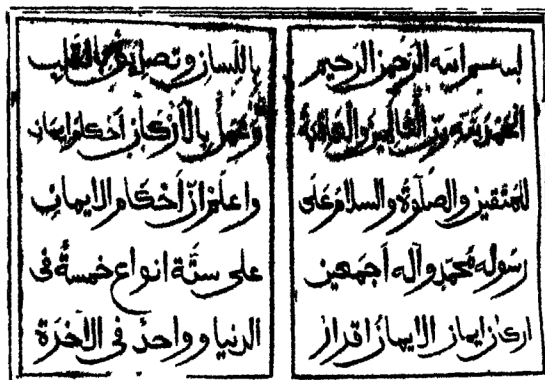 بسم الله الرحمن الرحيم
الحمد لله رب العالمين والعاقبة
للمتقين والصلوة والسلام على
رسوله محمد وآله أجمعين
اركان ايمان الايمان اقرار
باللسان وتصديق بالقلب
وعمل بالأركان أحكام ايمان
واعلم ان أحكام الايمان
على ستة انواع خمسة فى
الدنيا وواحد فى الآخرة